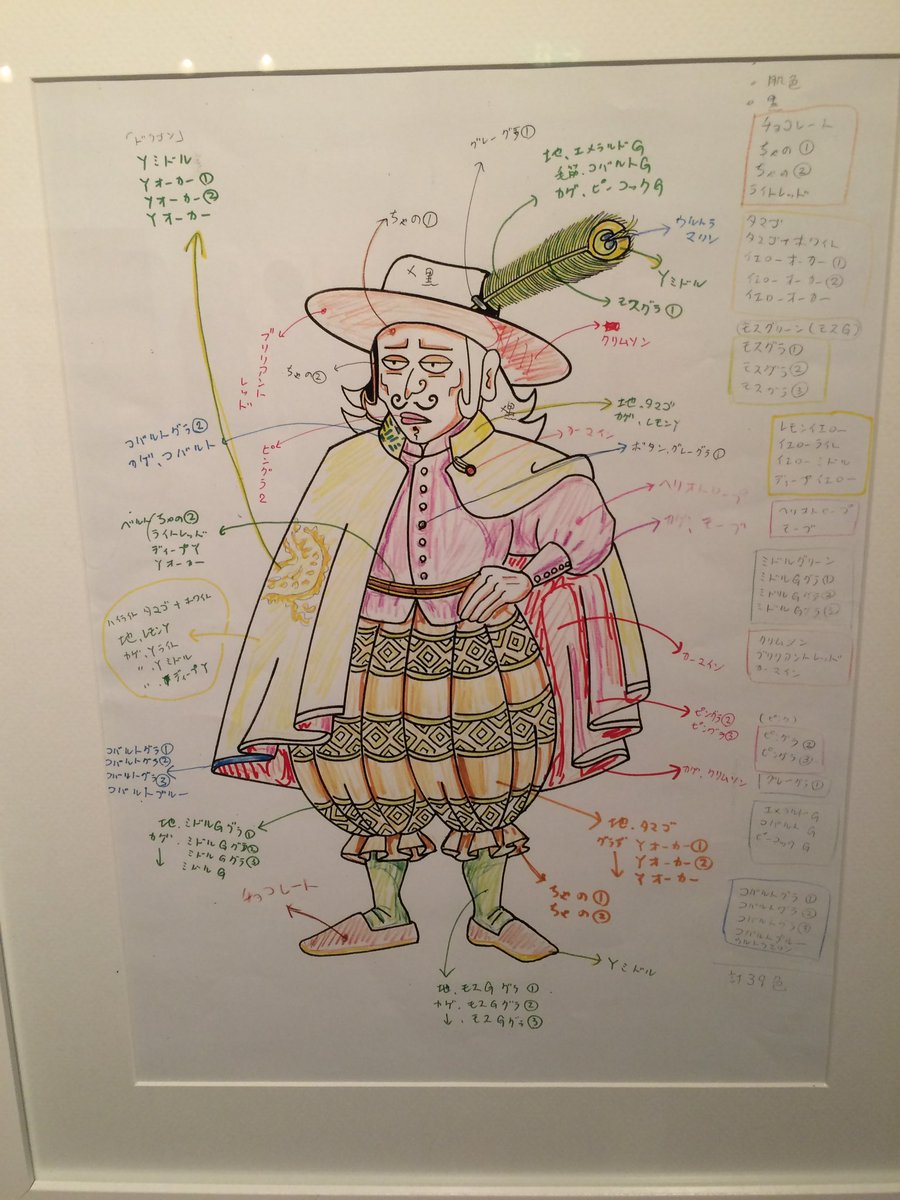 Yミドル
Yオーカー①
Yオーカー②
Yオーカー
グレーグラ①
地、エメラルドG
毛筋、コバルトG
カゲ、ピーコックG
ちゃの①
ウルトラ
マリン
Yミドル
モスグラ①
クリムソン
ブリリアント
レッド
ちゃの②
地、タマゴ
カゲ、レモンY
コバルトグラ②
カゲ、コバルト
ピングラ2
カーマイン
ボタン、グレーグラ①
ヘリオトロープ
カゲ、モーブ
ベルト/ちゃの②
ライトレッド
ディープY
Yオーカー
ハイライト タマゴ+ホワイト
地、レモンY
カゲ、Yライト
〃、Yミドル
〃、ディープY
カーマイン
ピングラ②
ピングラ③
カゲ、クリムソン
コバルトグラ①
コバルトグラ②
コバルトグラ③
コバルトブルー
地、ミドルGグラ①
カゲ、ミドルGグラ②
ミドルGグラ③
ミドルG
地、タマゴ
グラデ Yオーカー①
Yオーカー②
Yオーカー
チョコレート
ちゃの①
ちゃの②
Yミドル
地、モスGグラ①
カゲ、モスGグラ②
↓、モスGグラ③
・肌色
・黒
チョコレート
ちゃの①
ちゃの②
ライトレッド
タマゴ
タマゴ+ホワイト
イエローオーカー①
イエローオーカー②
イエローオーカー
モスグリーン(モスG)
モスグラ①
モスグラ②
モスグラ③
レモンイエロー
イエローライト
イエローミドル
ディープイエロー
ヘリオトロープ
モーブ
ミドルグリーン
ミドルGグラ①
ミドルGグラ②
ミドルGグラ③
クリムソン
ブリリアントレッド
カーマイン
(ピンク)
ピングラ②
ピングラ③
グレーグラ①
エメラルドG
コバルトG
ピーコックG
コバルトグラ①
コバルトグラ②
コバルトグラ③
コバルトブルー
ウルトラマリン
計39色